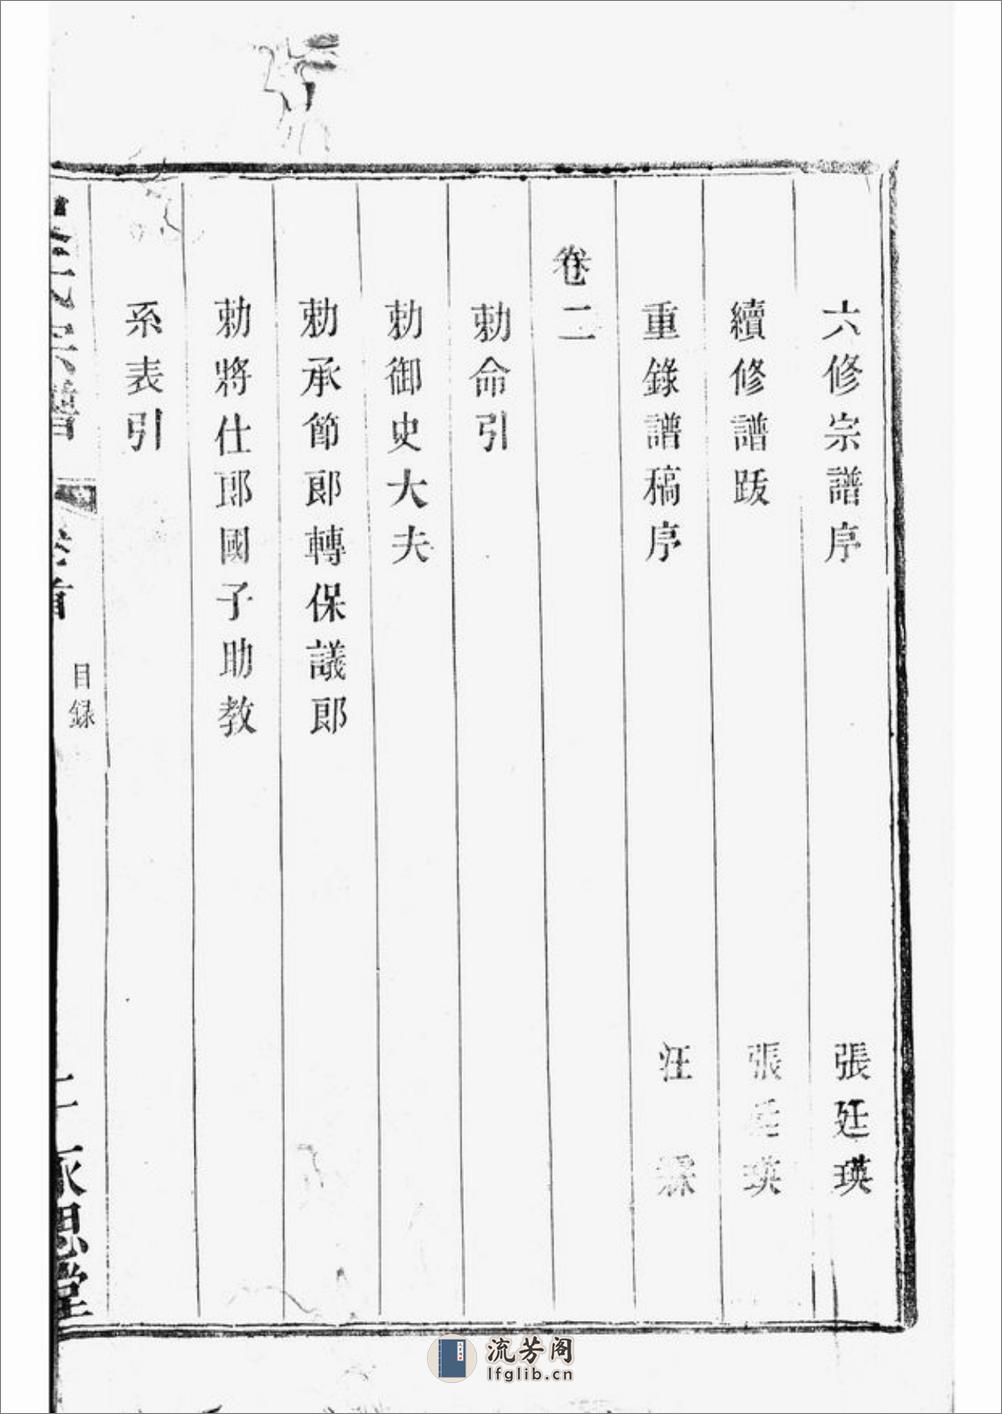 六修宗譜序 張廷瑛
續修譜跋 張廷瑛
重錄譜稿序 汪霖
卷二
勅命引
勅御史大夫
勅承節郎轉保議郎
勅將仕郎國子助教
系表引
氏宗譜 卷首 目録 永思堂
流芳阁
lfglib.cn